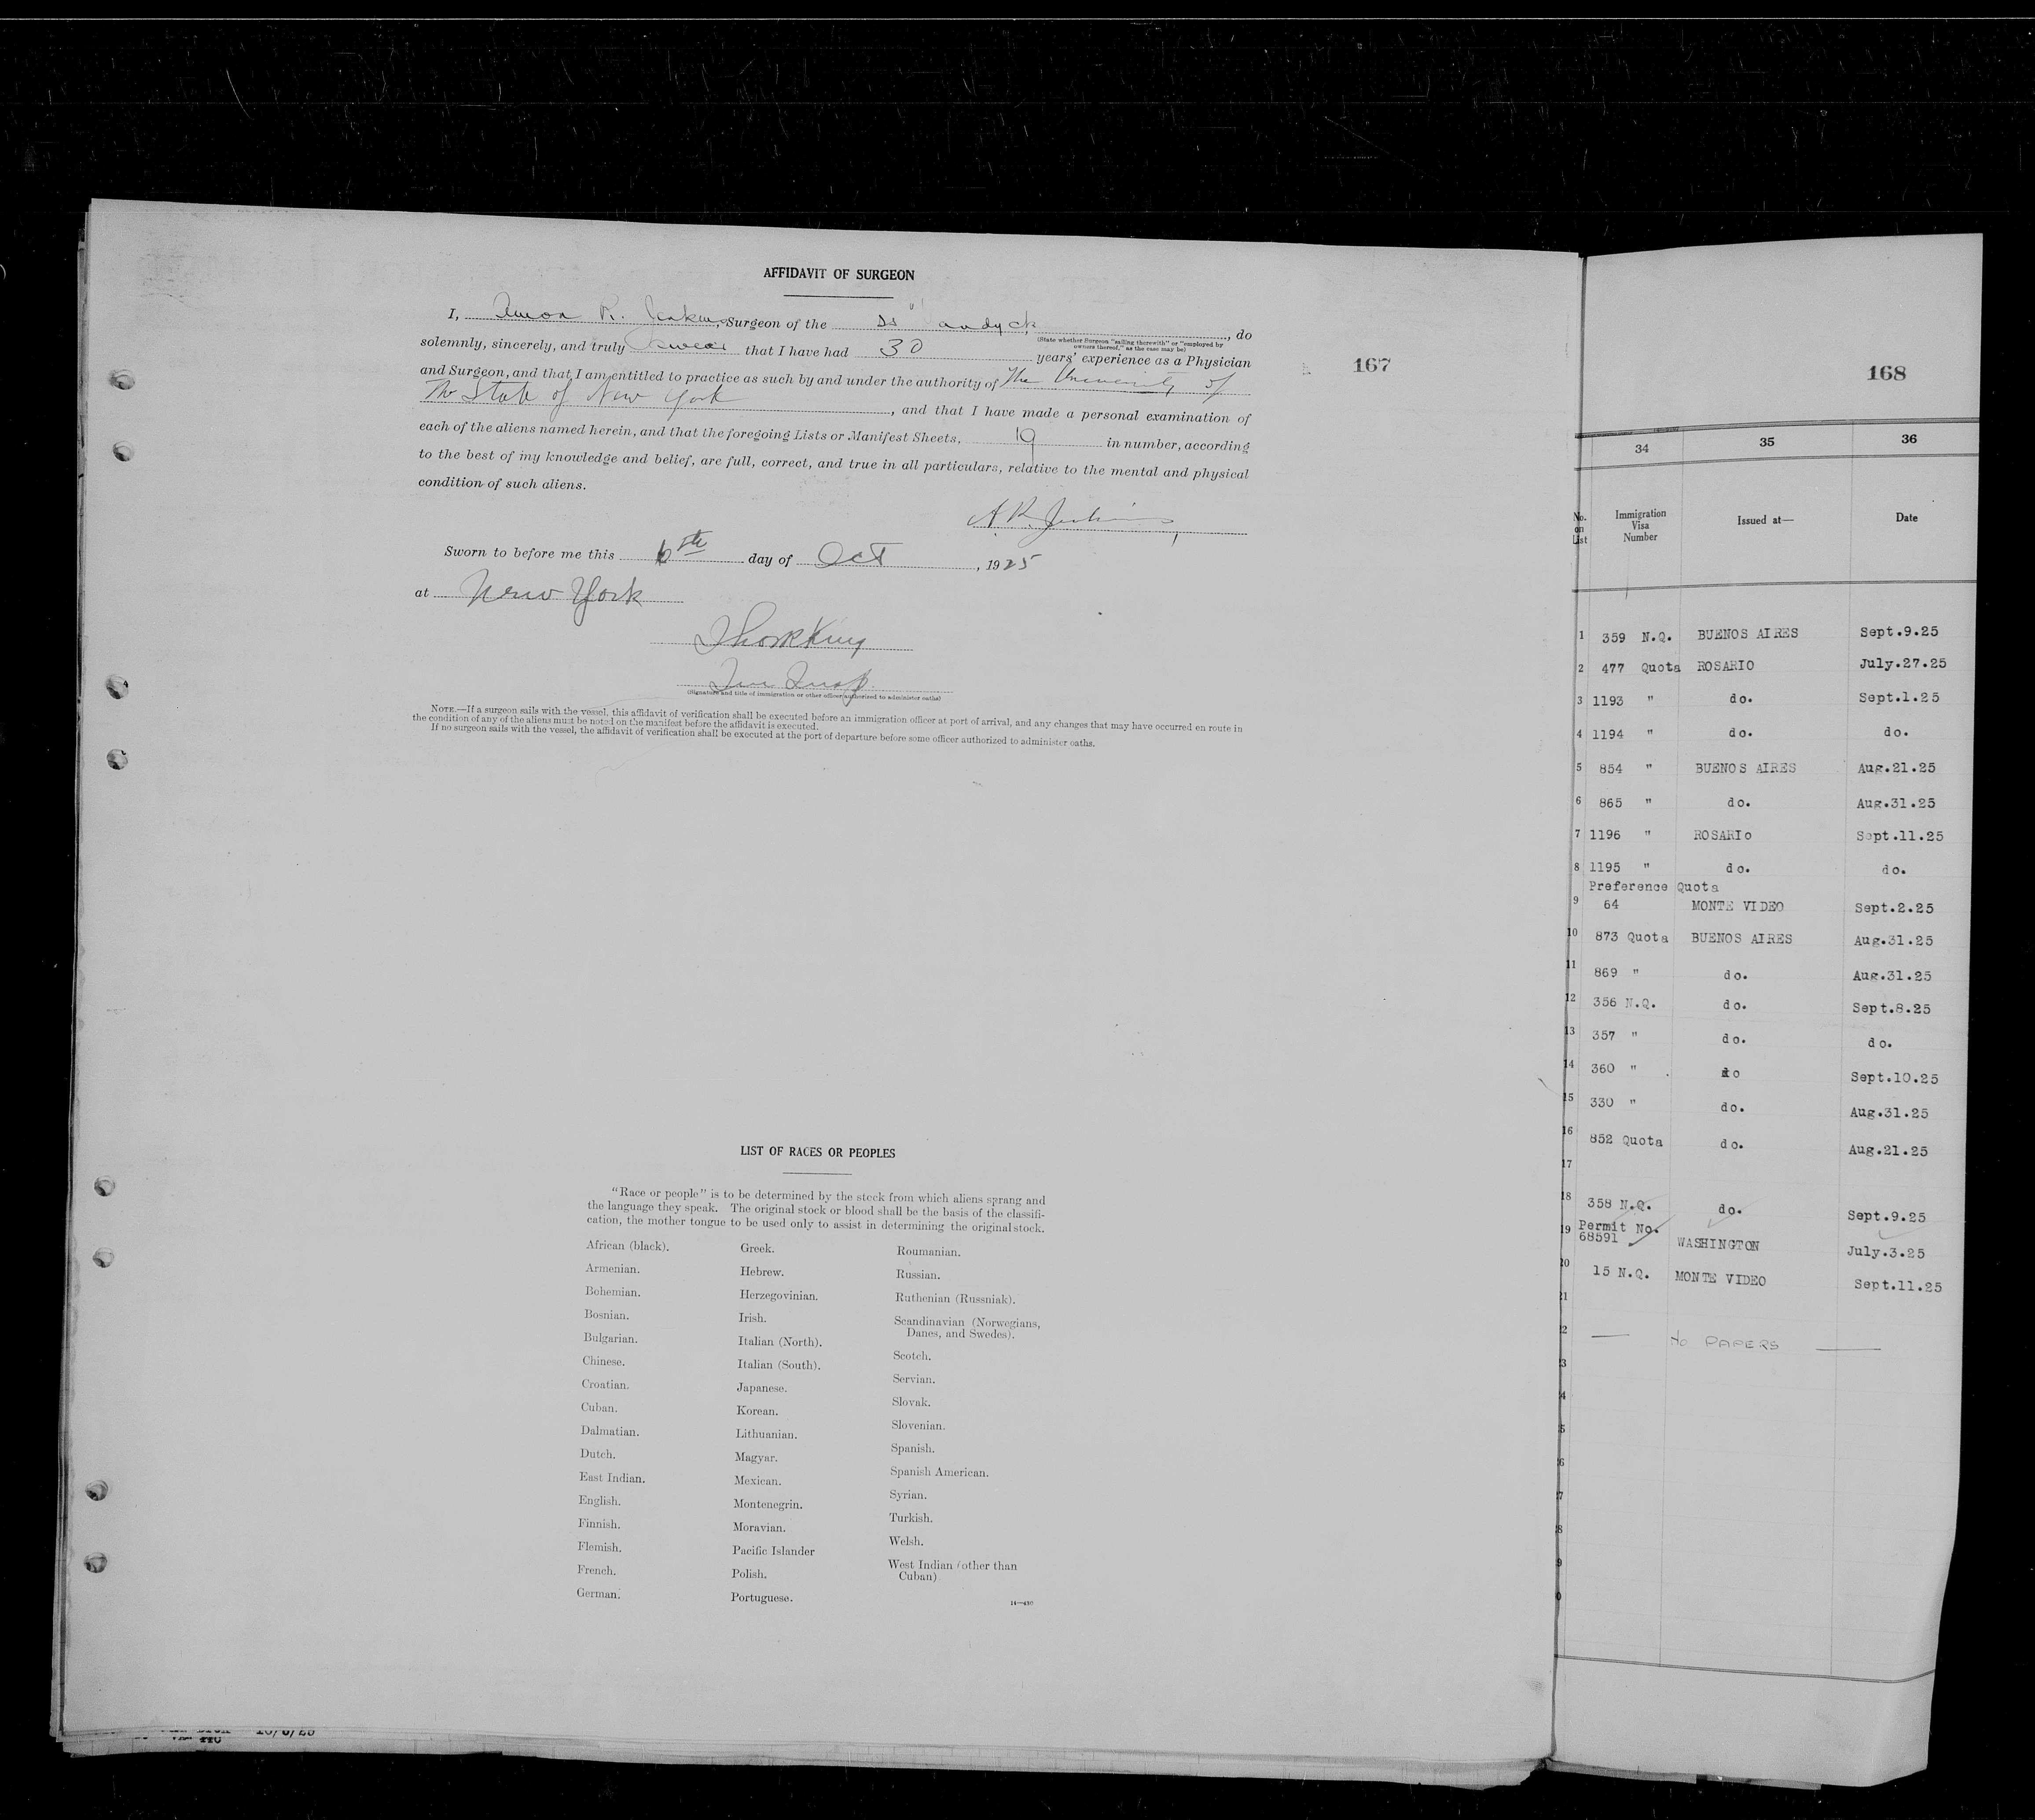 AFFIDAVIT OF SURGEON
I, Amon R. Jenkins, Surgeon of the SS "Vandyck, do
(State whether Surgeon "sailing therewith" or "employed by
owners thereof," as the case may be)
solemnly, sincerely, and truly swear that I have had 30 years' experience as a Physician
and Surgeon, and that I am entitled to practice as such by and under the authority of The University of
The State of New York, and that I have made a personal examination of
each of the aliens named herein, and that the foregoing Lists or Manifest Sheets, 19 in number, according
to the best of my knowledge and belief, are full, correct, and true in all particulars, relative to the mental and physical
condition of such aliens.
A R Jenkins,
Sworn to before me this 6th day of Oct, 1925
at New York
King
(Signature and title of immigration or other officer authorized to administer oaths)
NOTE.—If a surgeon sails with the vessel, this affidavit of verification shall be executed before an immigration officer at port of arrival, and any changes that may have occurred en route in
the condition of any of the aliens must be noted on the manifest before the affidavit is executed.
If no surgeon sails with the vessel, the affidavit of verification shall be executed at the port of departure before some officer authorized to administer oaths.
167
LIST OF RACES OR PEOPLES
"Race or people" is to be determined by the stock from which aliens sprang and
the language they speak. The original stock or blood shall be the basis of the classifi-
cation, the mother tongue to be used only to assist in determining the original stock.
African (black).
Armenian.
Bohemian.
Bosnian.
Bulgarian.
Chinese.
Croatian.
Cuban.
Dalmatian.
Dutch.
East Indian.
English.
Finnish.
Flemish.
French.
German.
Greek.
Hebrew.
Herzegovinian.
Irish.
Italian (North).
Italian (South).
Japanese.
Korean.
Lithuanian.
Magyar.
Mexican.
Montenegrin.
Moravian.
Pacific Islander
Polish.
Portuguese.
Roumanian.
Russian.
Ruthenian (Russniak).
Scandinavian (Norwegians,
Danes, and Swedes).
Scotch.
Servian.
Slovak.
Slovenian.
Spanish.
Spanish American.
Syrian.
Turkish.
Welsh.
West Indian (other than
Cuban)
14—430
10/6/25
168
34 35 36
No. on List Immigration Visa Number Issued at— Date
1 359 N.Q. BUENOS AIRES Sept.9.25
2 477 Quota ROSARIO July.27.25
3 1193 " do. Sept.1.25
4 1194 " do. do.
5 854 " BUENOS AIRES Aug.21.25
6 865 " do. Aug.31.25
7 1196 " ROSARIo Sept.11.25
8 1195 " do. do.
Preference Quota
9 64 MONTE VIDEO Sept.2.25
10 873 Quota BUENOS AIRES Aug.31.25
11 869 " do. Aug.31.25
12 356 N.Q. do. Sept.8.25
13 357 " do. do.
14 360 " do Sept.10.25
15 330 " do. Aug.31.25
16 852 Quota do. Aug.21.25
17
18 358 N.Q. do. Sept.9.25
Permit No.
19 68591 WASHINGTON July.3.25
20 15 N.Q. MONTE VIDEO Sept.11.25
21
2 — No PAPERS —
3
4
5
6
7
8
9
0